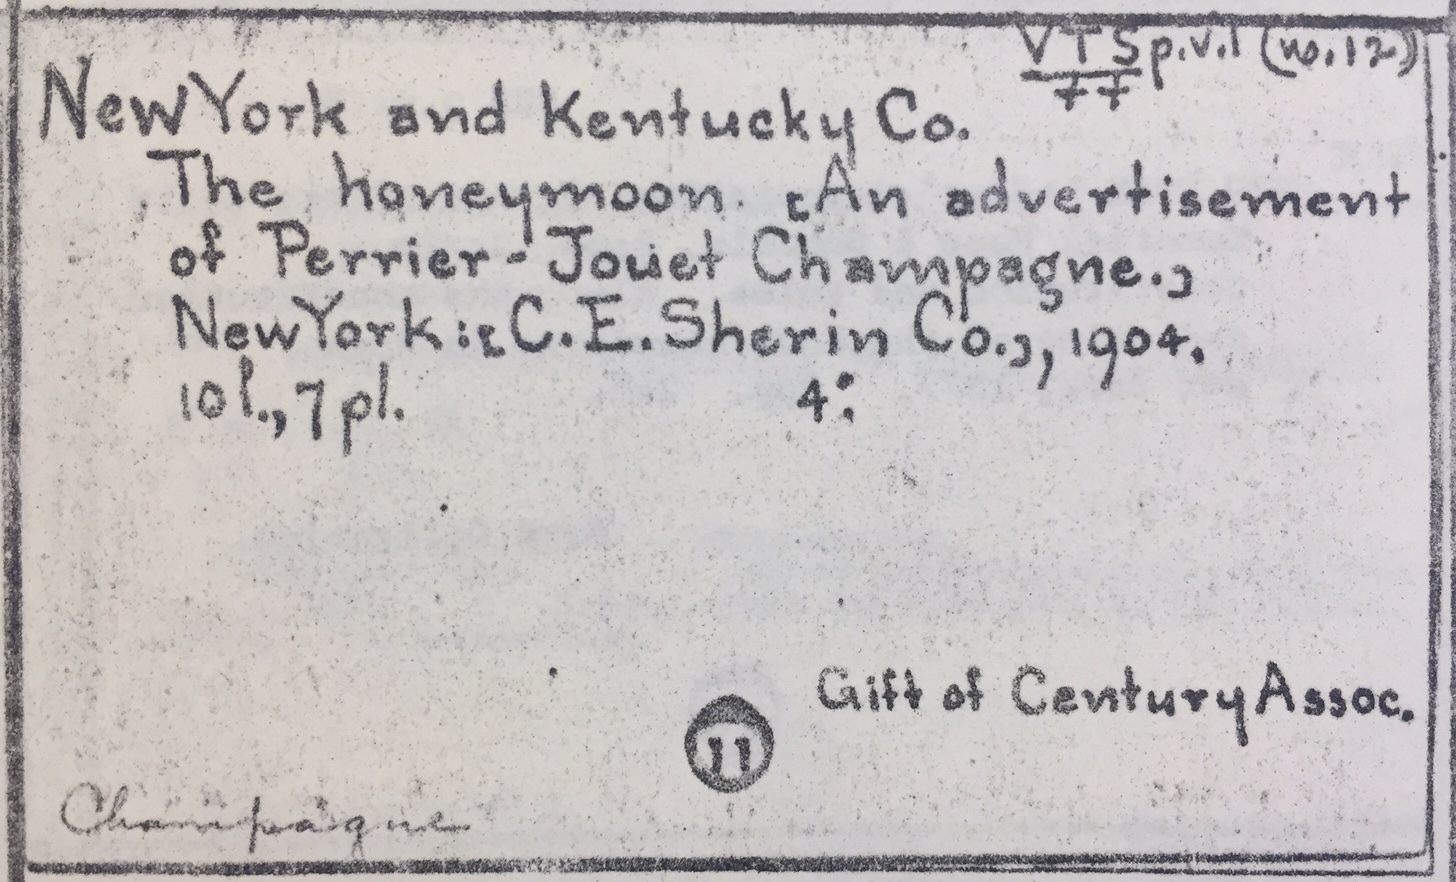 VTS p.v.1 (no.12)
New York and Kentucky Co.
The honeymoon. [An advertisement
of Perrier-Jouet Champagne.]
New York: [C. E. Sherin Co.], 1904.
10 l., 7 pl. 4°.
Gift of Century Assoc.
11
Champagne